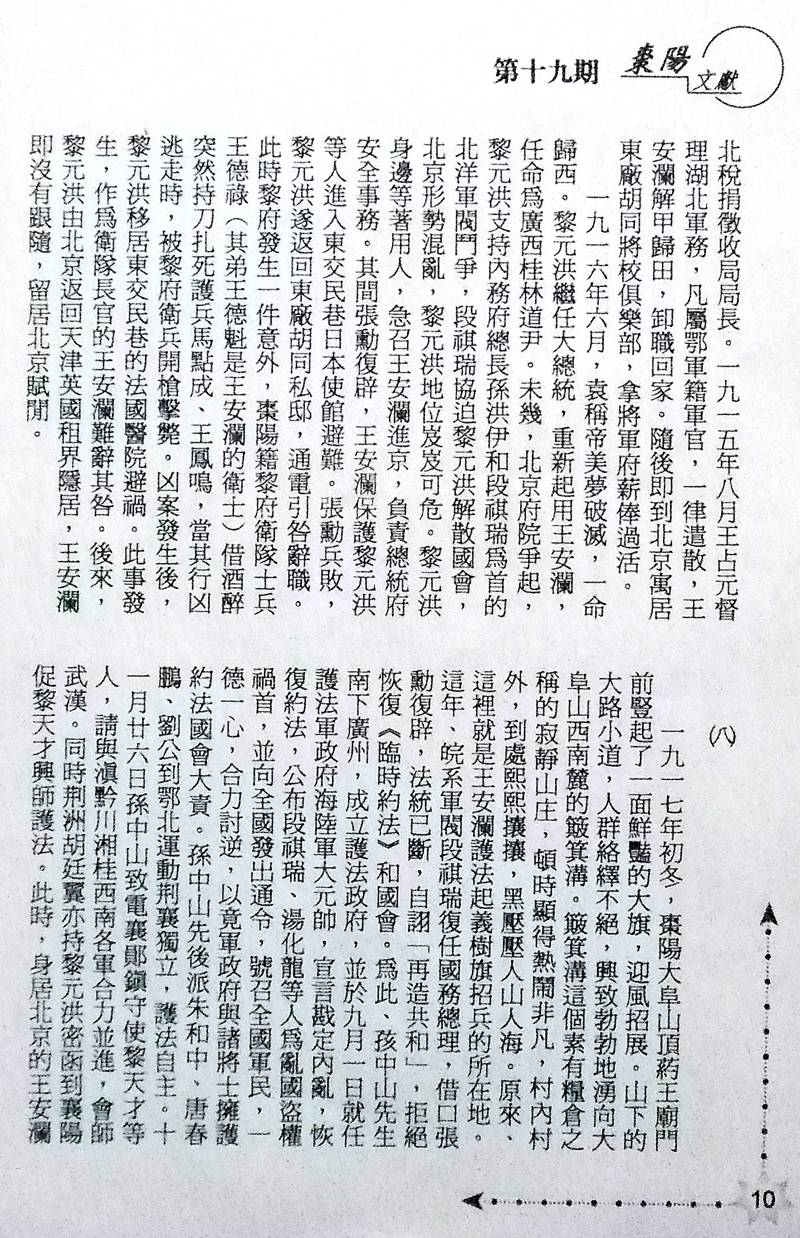 第十九期
棗陽
文獻
北稅捐徵收局局長。一九一五年八月王占元督
理湖北軍務，凡屬鄂軍籍軍官，一律遣散，王
安瀾解甲歸田，卸職回家。隨後即到北京寓居
東廠胡同將校俱樂部，拿將軍府薪俸過活。
一九一六年六月，袁稱帝美夢破滅，一命
歸西。黎元洪繼任大總統，重新起用王安瀾，
任命爲廣西桂林道尹。未幾，北京府院爭起，
黎元洪支持內務府總長孫洪伊和段祺瑞爲首的
北洋軍閥鬥爭，段祺瑞協迫黎元洪解散國會，
北京形勢混亂，黎元洪地位岌岌可危。黎元洪
身邊等著用人，急召王安瀾進京，負責總統府
安全事務。其間張勳復辟，王安瀾保護黎元洪
等人進入東交民巷日本使館避難。張勳兵敗，
黎元洪遂返回東廠胡同私邸，通電引咎辭職。
此時黎府發生一件意外，棗陽籍黎府衛隊士兵
王德祿（其弟王德魁是王安瀾的衛士）借酒醉
突然持刀扎死護兵馬點成、王鳳鳴，當其行凶
逃走時，被黎府衛兵開槍擊斃。凶案發生後，
黎元洪移居東交民巷的法國醫院避禍。此事發
生，作爲衛隊長官的王安瀾難辭其咎。後來，
黎元洪由北京返回天津英國租界隱居，王安瀾
即沒有跟隨，留居北京賦閒。
㈧
一九一七年初冬，棗陽大阜山頂葯王廟門
前豎起了一面鮮豔的大旗，迎風招展。山下的
大路小道，人群絡繹不絕，興致勃勃地湧向大
阜山西南麓的簸箕溝。簸箕溝這個素有糧倉之
稱的寂靜山庄，頓時顯得熱鬧非凡，村內村
外，到處熙熙攘攘，黑壓壓人山人海。原來、
這裡就是王安瀾護法起義樹旗招兵的所在地。
這年、皖系軍閥段祺瑞復任國務總理，借口張
勳復辟，法統已斷，自詡「再造共和」，拒絕
恢復《臨時約法》和國會。爲此、孩中山先生
南下廣州，成立護法政府，並於九月一日就任
護法軍政府海陸軍大元帥，宣言戡定內亂，恢
復約法，公布段祺瑞、湯化龍等人爲亂國盜權
禍首，並向全國發出通令，號召全國軍民，一
德一心，合力討逆，以竟軍政府與諸將士擁護
約法國會大責。孫中山先後派朱和中、唐春
鵬、劉公到鄂北運動荆襄獨立，護法自主。十
一月廿六日孫中山致電襄鄖鎮守使黎天才等
人，請與滇黔川湘桂西南各軍合力並進，會師
武漢。同時荆洲胡廷翼亦持黎元洪密函到襄陽
促黎天才興師護法。此時，身居北京的王安瀾
10